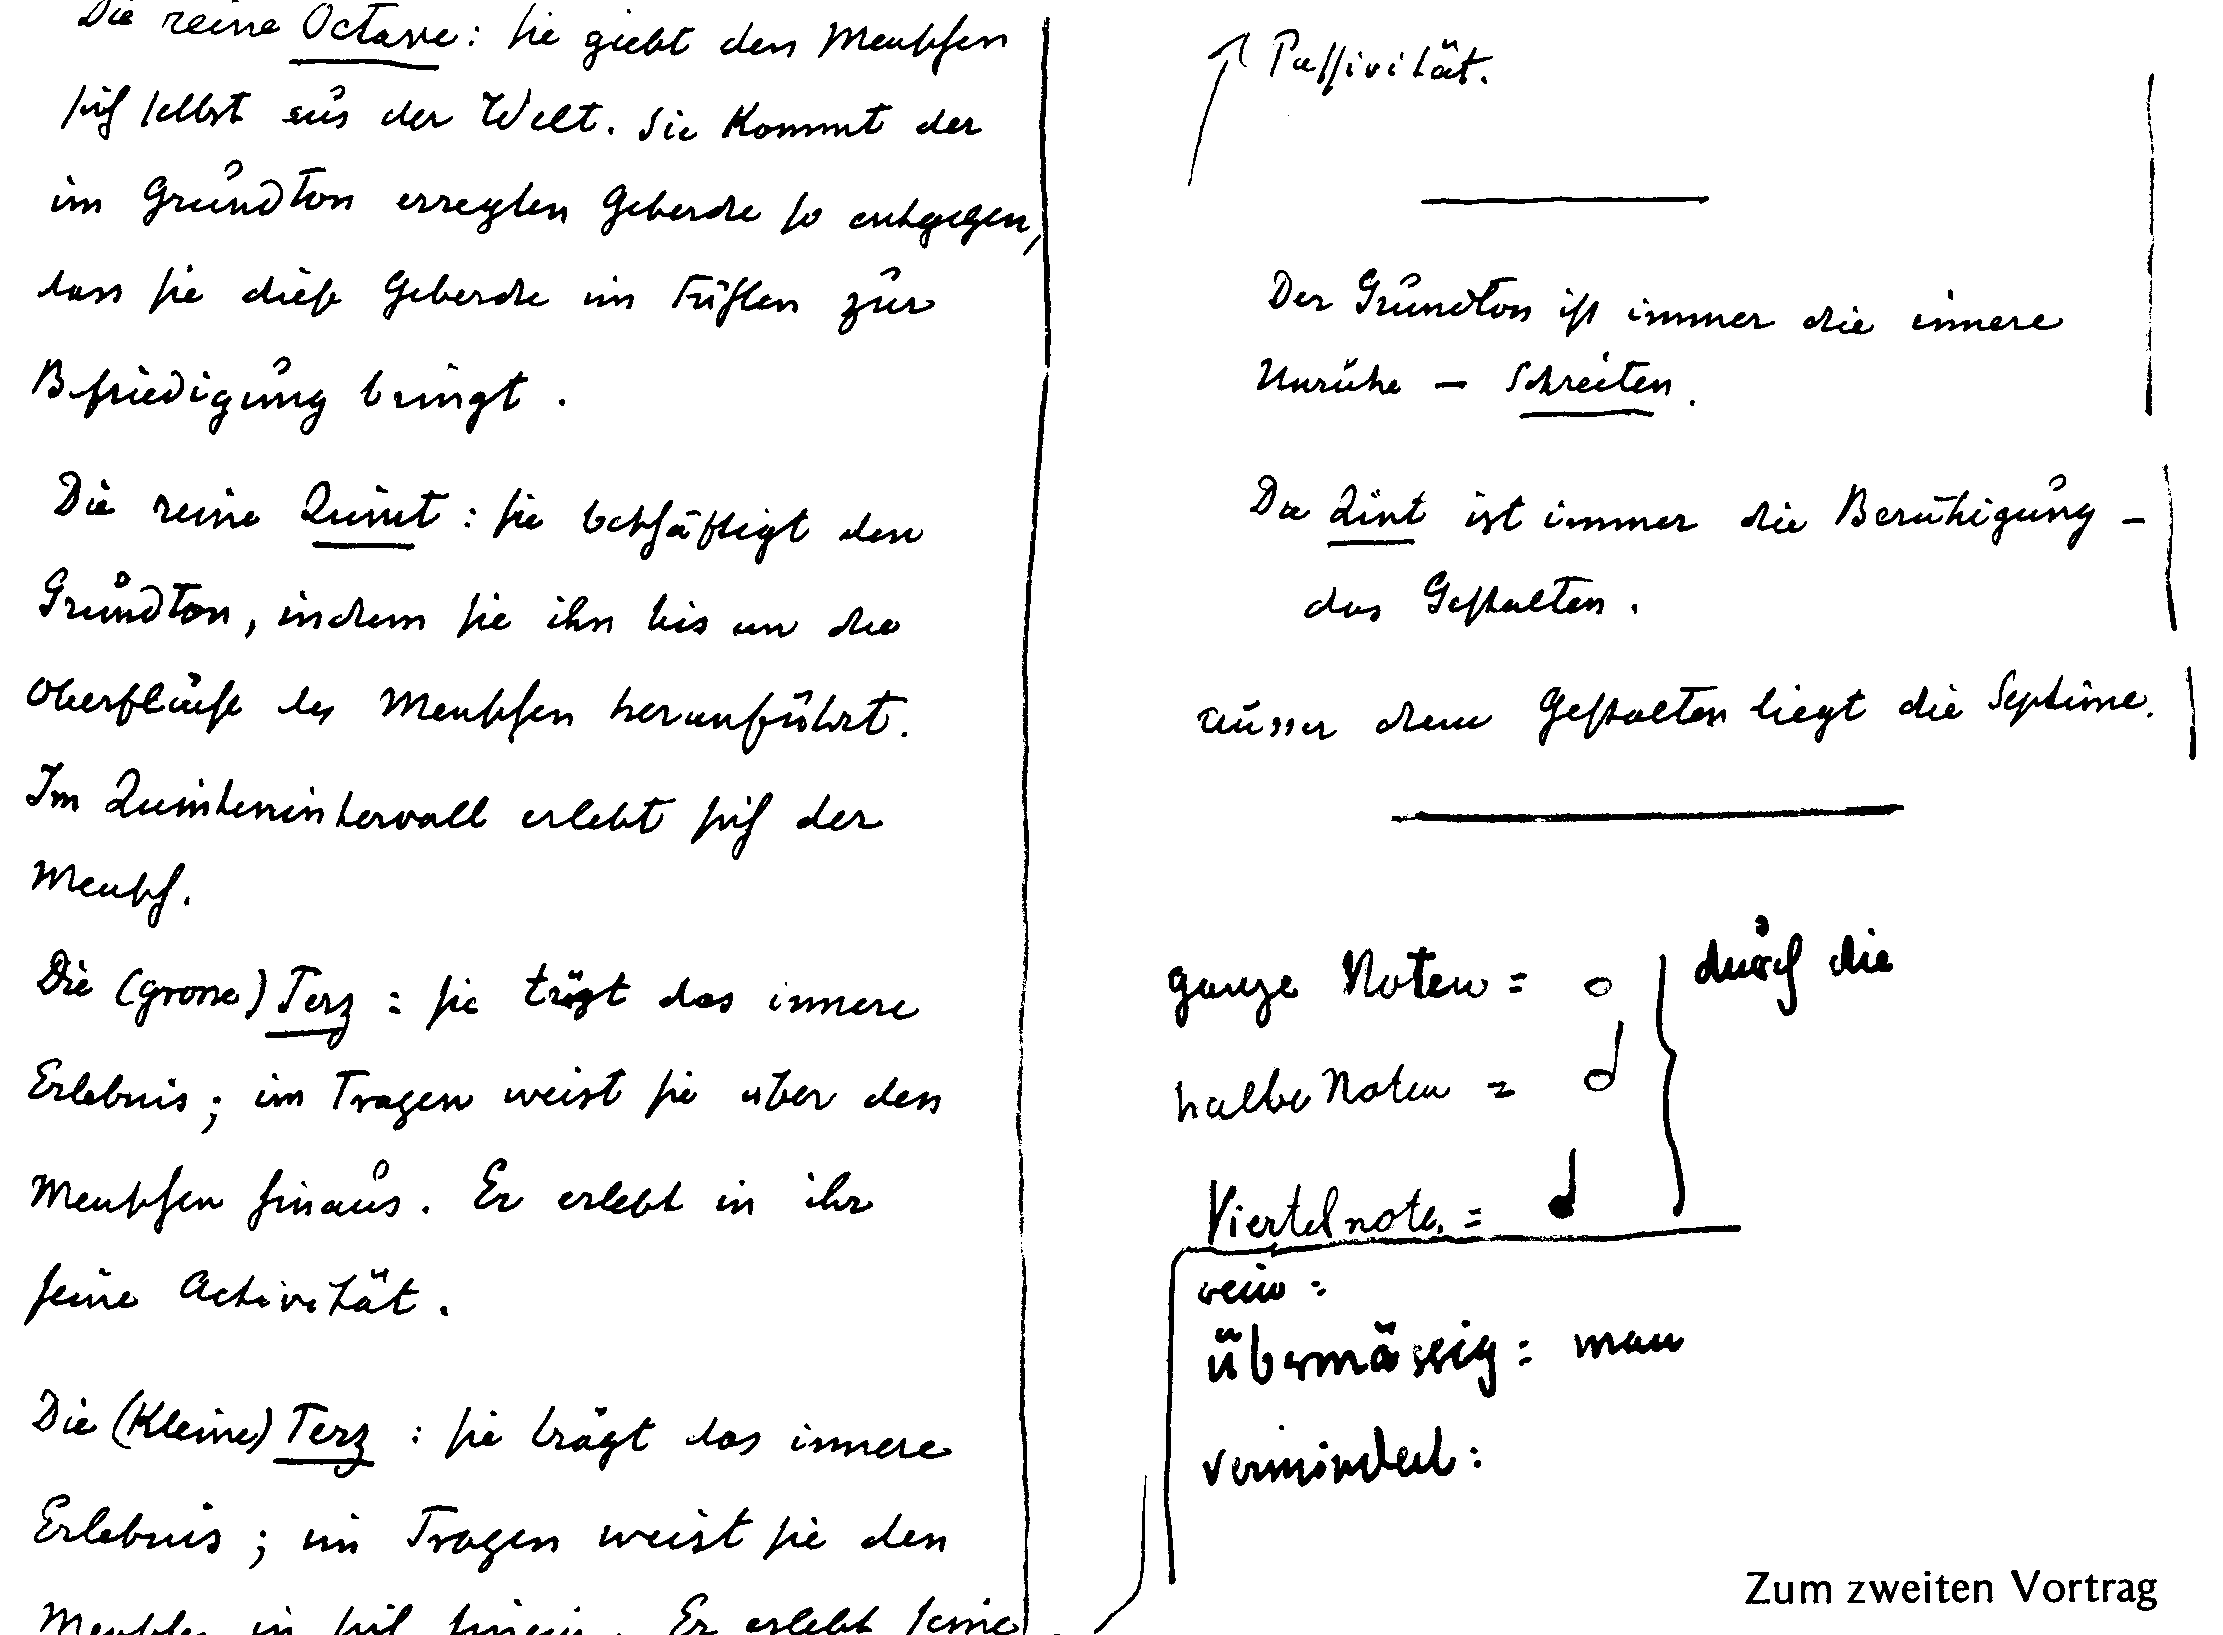 Die reine Octave: sie giebt den Menschen
sich selbst aus der Welt. Sie kommt der
im Grundton erregten Geberde so entgegen,
dass sie diese Geberde im Fühlen zur
Befriedigung bringt.
Die reine Quint: sie beschäftigt den
Grundton, indem sie ihn bis an die
Oberfläche des Menschen heranführt.
Im Quintenintervall erlebt sich der
Mensch.
Die (grosse) Terz: sie trägt das innere
Erlebnis; im Tragen weist sie über den
Menschen hinaus. Er erlebt in ihr
seine Activität.
Die (kleine) Terz: sie trägt das innere
Erlebnis; im Tragen weist sie den
Menschen in sich hinein. Er erlebt seine
Passivität.
Der Grundton ist immer die innere
Unruhe – Schreiten.
Die Qint ist immer die Beruhigung –
das Gestalten.
ausser dem Gestalten liegt die Septime.
ganze Noten =
durch die
halbe Noten =
Viertelnote. =
rein:
übermässig: man
vermindert:
Zum zweiten Vortrag